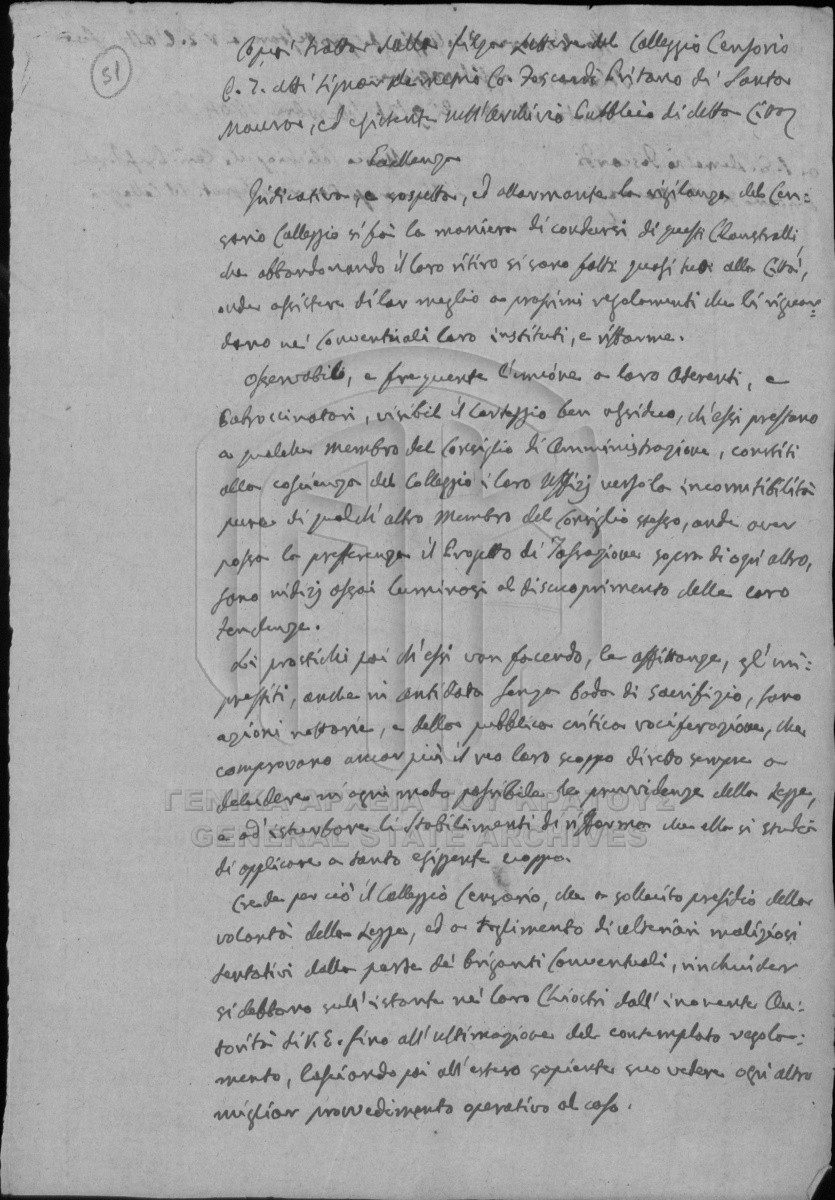 51
Copia tratta dalla filza lettere del Colleggio Censorio
C. 7. all' Signor Demetrio Co. Foscardi Pritano di Santa
Maura, ed esistente nell'Archivio Pubblico di detta Città
Eccellenza
Indicativa, e sospetta, ed allarmante la vigilanza del Cen=
sorio Colleggio si fà la maniera di condursi di questi Claustralli,
che abbandonando il loro ritiro si sono fatti quasi tutti alla Città,
onde assistere di lor meglio a prossimi regolamenti che li riguar=
dano ne' Conventuali loro instituti, e riforme.
Osservabile, e frequente l'unione a loro Aderenti, e
Patroccinatori, visibil il carteggio ben assiduo, ch'essi prestano
a qualche membro del Consiglio di Amministrazione, constiti
alla coscienza del Colleggio i loro Uffizj verso la incorrutibilità
pure di qualch'altro Membro del Consiglio stesso, onde aver
possa la preferenza il Progetto di sopra di ogni altro,
sono indizj assai luminosi al discuoprimento delle loro
tendenze.
Li prostichi poi ch'essi van facendo, le affittanze, gl'im=
prestiti, anche in antidata senza bada di sacrifizio, sono
azioni nottorie, e della pubblica critica vociferazione, che
comprovano ancor più il reo loro scoppo diretto sempre a
deludere in ogni modo possibile le providenze della Legge,
e ad isturbare li Stabilimenti di riforma che ella si studia
di applicare a tanto esiggente uoppo.
Crede per ciò il Colleggio Censorio, che a sollecito presidio della
volontà della Legge, ed a toglimento di ulteriori maliziosi
tentativi dalla parte de' briganti Conventuali, rinchiuder
si debbano sull'istante ne' loro Chiostri dall'inerente Au=
torità di V. E. fino all'ultimazione del contemplato regola=
mento, lasciando poi all'esteso sapiente suo vedere ogni altro
miglior provvedimento operativo al caso.
ΓΕΝΙΚΑ ΑΡΧΕΙΑ ΤΟΥ ΚΡΑΤΟΥΣ
GENERAL STATE ARCHIVES